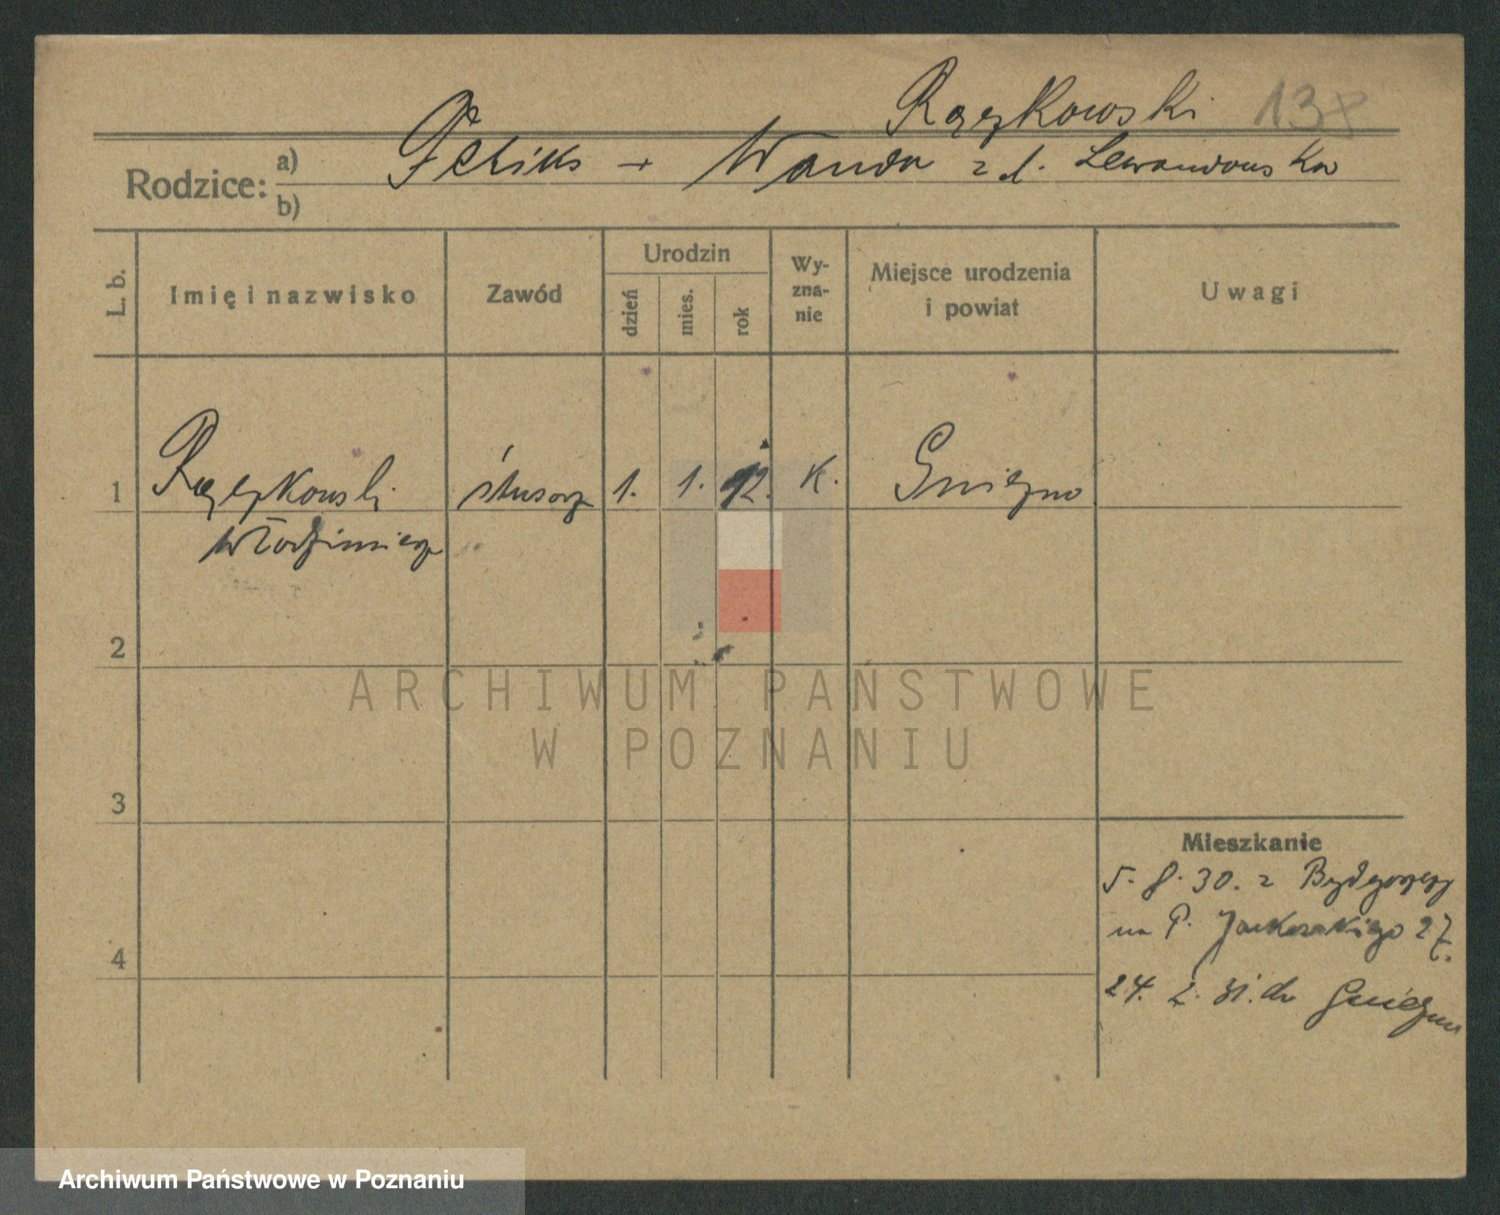 Rczykowski 138
Rodzice: a) Feliks + Wanda z d. Lewandowska
b)
L. b.
Imię i nazwisko
Zawód
Urodzin
dzień
mies.
rok
Wy-
zna-
nie
Miejsce urodzenia
i powiat
Uwagi
1 ślusarz 1. 1. 12. K. Gniezno
Włodzimierz
2
ARCHIWUM PAŃSTWOWE
W POZNANIU
3
Mieszkanie
5. 8. 30. z Bydgoszczy
na P. 27.
4
24. 2. 31. do Gniezna
Archiwum Państwowe w Poznaniu